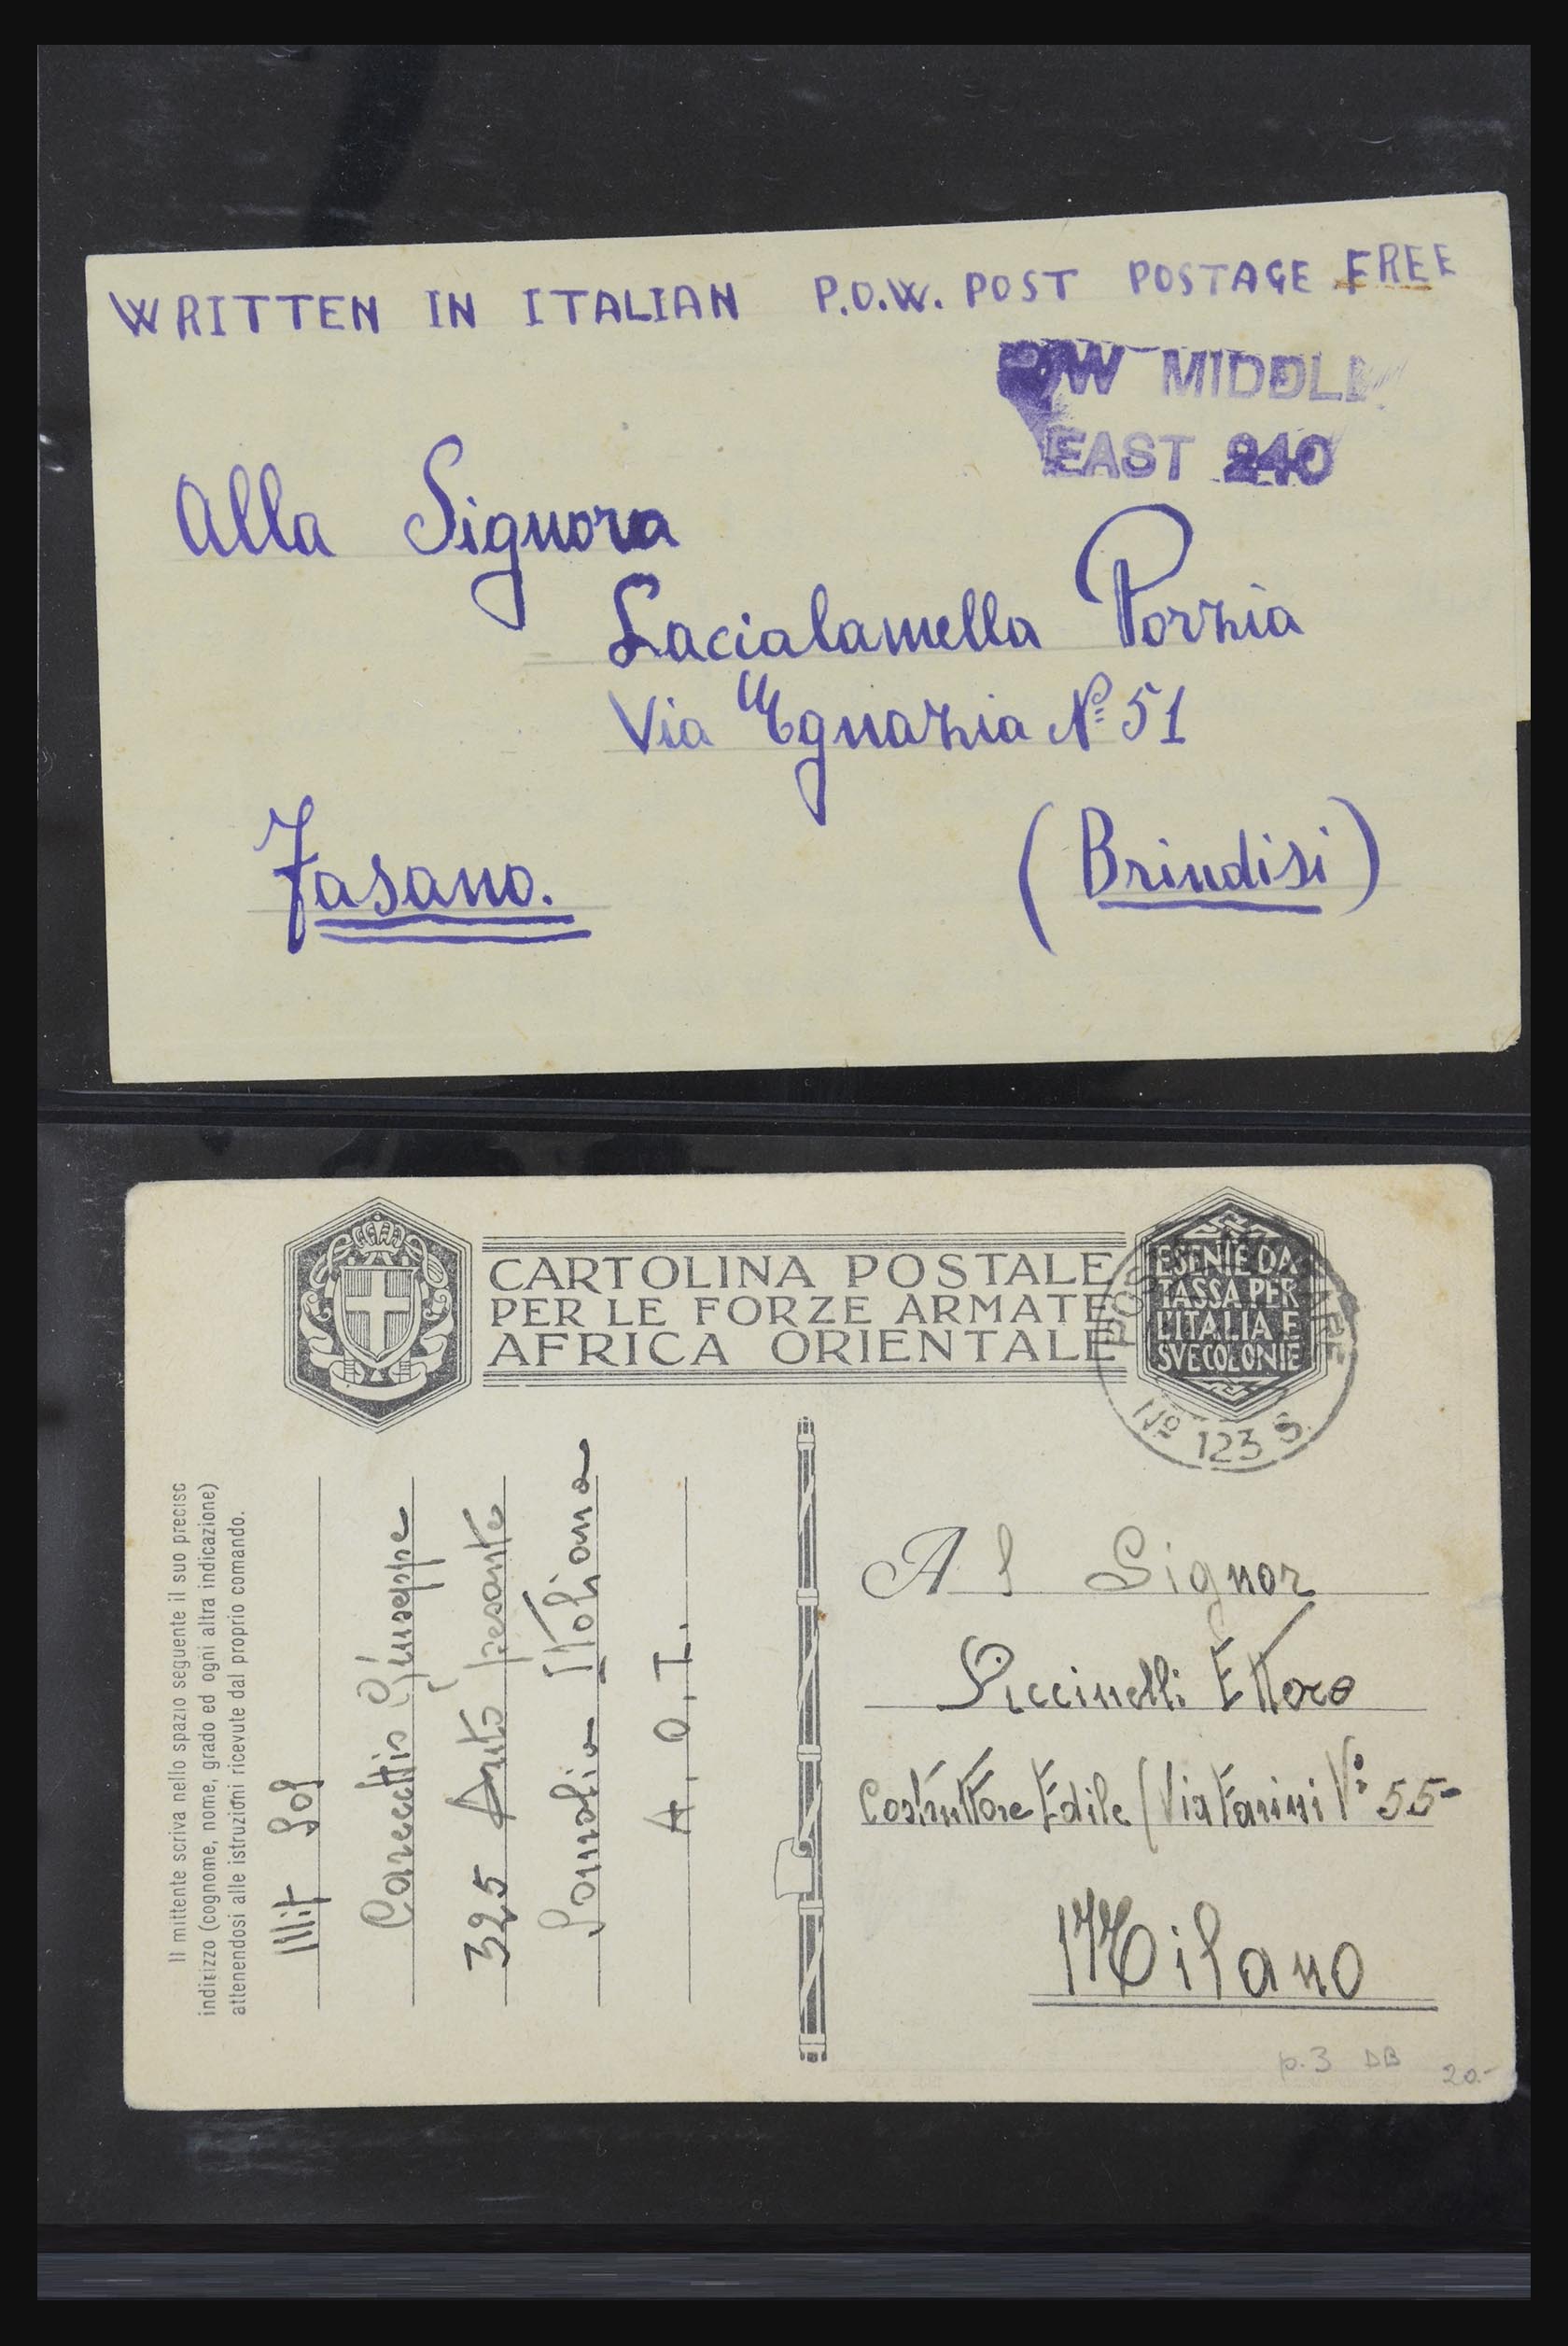 WRITTEN IN ITALIAN P.O.W. POST POSTAGE FREE
P/W MIDDLE
EAST 240
Alla Signora
Lacialamella Porzia
Via Egnazia Nº 51
Fasano.
(Brindisi)
CARTOLINA POSTALE
PER LE FORZE ARMATE
AFRICA ORIENTALE
ESENTE DA
TASSA PER
L'ITALIA E
SVE COLONIE
Nº 123 S.
Il mittente scriva nello spazio seguente il suo preciso
indirizzo (cognome, nome, grado ed ogni altra indicazione)
attenendosi alle istruzioni ricevute dal proprio comando.
Giuseppe
325 Auto pesante
Somalia Italiana
A.O.I.
Al Signor
Piccinelli Ettore
Costruttore Edile (Via Farini Nº 55-
Milano
p.3 DB 20.-